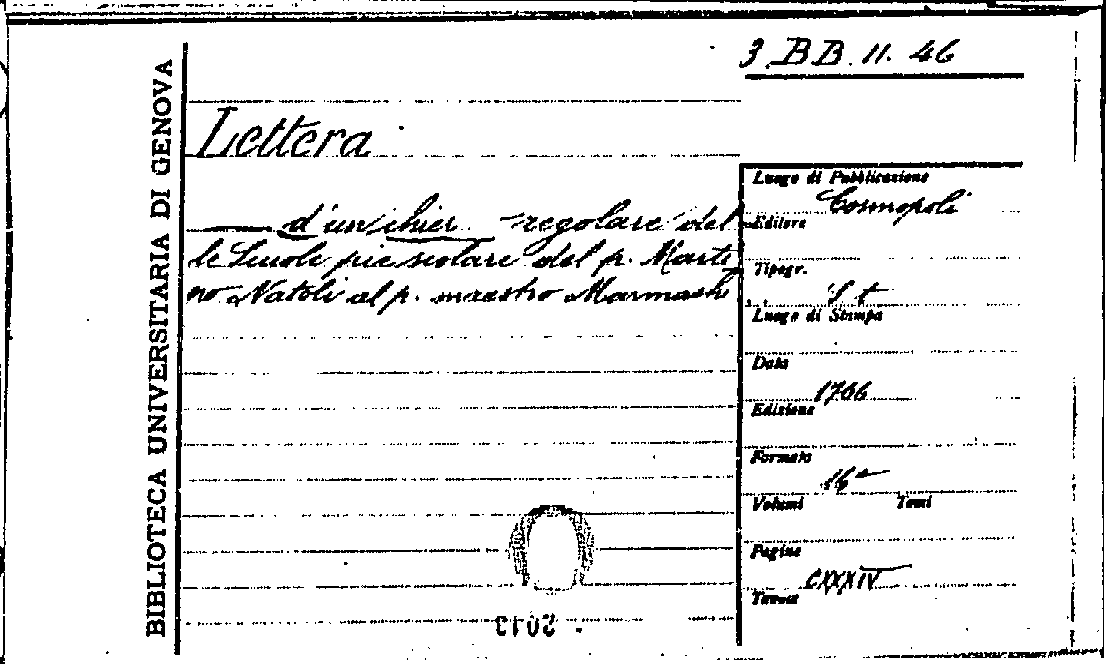 3 BB. 11. 46
BIBLIOTECA UNIVERSITARIA DI GENOVA
Lettera
— d'un chier. regolare del
le Scuole pie scolare del p. Marti
no Natoli al p. maestro
Luogo di Pubblicazione
Cosmopoli
Editore
Tipogr.
s t
Luogo di Stampa
Data
1766
Edizione
Formato
16°
Volumi Tomi
Pagine
CXXXIV
Tavole